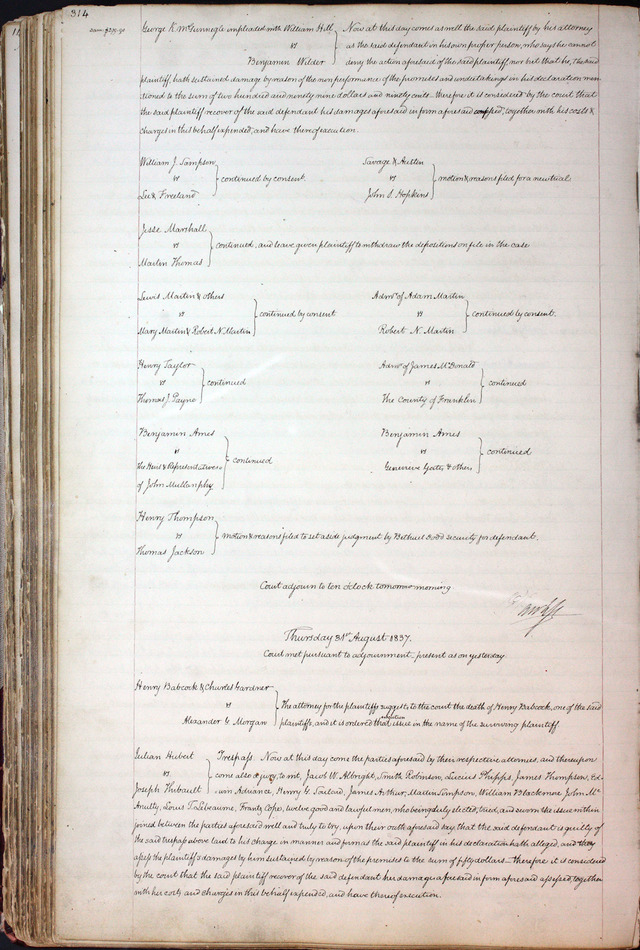 314
George K. McGunnegle impleaded with William Hill
vs
Benjamin Wilder
Now at this day comes as well the said plaintiff by his attorney
as the said defendant in his own proper person, who says he cannot
deny the action aforesaid of the said plaintiff, nor but that he, the said
plaintiff, hath sustained damage by reason of the non performance of the promises and undertakings in his declaration men
tioned to the sum of two hundred and ninety nine dollars and ninety cents – therefore it is considered by the court that
the said plaintiff recover of the said defendant his damages aforesaid in form aforesaid, together with his costs &
charges in this behalf expended, and have thereof execution.
William J. Sampson
vs
Freeland
continued by consent.
Savage & Austin
vs
John S. Hopkins
motion & reasons filed for a new trial
Jesse Marshall
vs
Martin Thomas
continued, and leave given plaintiff to withdraw the depositions on file in the case
Lewis Martin & others
vs
Mary Martin & Robert N. Martin
continued by consent
Admr of Adam Martin
vs
Robert N. Martin
continued by consent.
Henry Taylor
vs
Thomas J. Payne
continued
Admr of James McDonald
vs
The County of Franklin
continued
Benjamin Ames
vs
the Heirs & Representatives
of John Mullanphy
continued
Benjamin Ames
vs
Genevieve & others
continued
Henry Thompson
vs
Thomas Jackson
motion & reasons filed to set aside judgment by Bethuel security for defendant.
Court adjourn to ten o'clock tomorrow morning.
Thursday 31st August 1837.
Court met pursuant to adjournment – present as on yesterday
Henry Babcock & Charles Gardner
vs
Alexander G. Morgan
The attorney for the plaintiffs suggests to the court the death of Henry Babcock, one of the said
plaintiffs, and it is ordered that execution issue in the name of the surviving plaintiff
Julian Hubert
vs
Joseph Thibault
Trespass. Now at this day come the parties aforesaid by their respective attornies, and thereupon
come also a jury, to wit, Jacob W. Albright, Smith Robinson, Lucius Phipps, James Thompson, Ed-
win Advance, Henry G. Soulard, James Arthur, Martin Simpson, William Blackmore John Mc
Anulty, Louis T. Lebeaume, Frantz Cope, twelve good and lawful men, who being duly elected, tried, and sworn the issue within
joined between the parties aforesaid well and truly to try, upon their oath aforesaid say, that the said defendant is guilty of
the said trespass above laid to his charge in manner and form as the said plaintiff in his declaration hath alleged, and they
assess the plaintiff's damages by him sustained by reason of the premises to the sum of fifty dollars – therefore it is considered
by the court that the said plaintiff recover of the said defendant her damages aforesaid in form aforesaid assessed, together
with her costs and charges in this behalf expended, and have thereof execution.